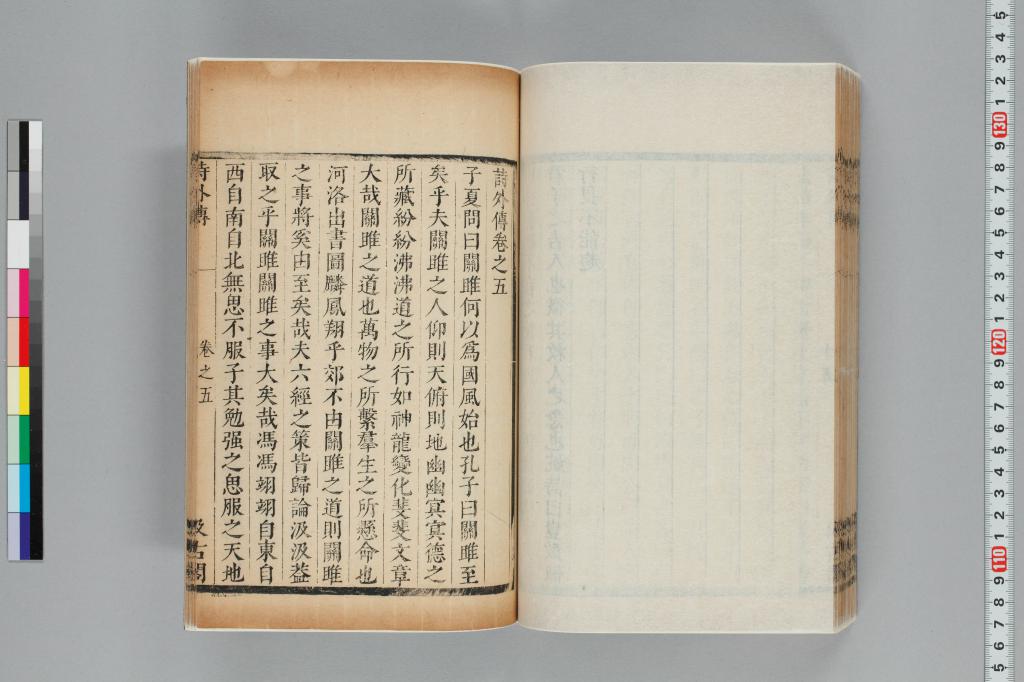 詩外傳卷之五
子夏問曰關雎何以爲國風始也孔子曰關雎至
矣乎夫關雎之人仰則天俯則地幽幽冥冥德之
所藏紛紛沸沸道之所行如神龍變化斐斐文章
大哉關雎之道也萬物之所繫羣生之所懸命也
河洛出書圖麟鳳翔乎郊不由關雎之道則關雎
之事將奚由至矣哉夫六經之策皆歸論汲汲葢
取之乎關雎關雎之事大矣哉馮馮翊翊自東自
西自南自北無思不服子其勉强之思服之天地
詩外傳 卷之五 汲古閣
5 4 3 2 1 130 9 8 7 6 5 4 3 2 1 120 9 8 7 6 5 4 3 2 1 110 9 8 7 6 5